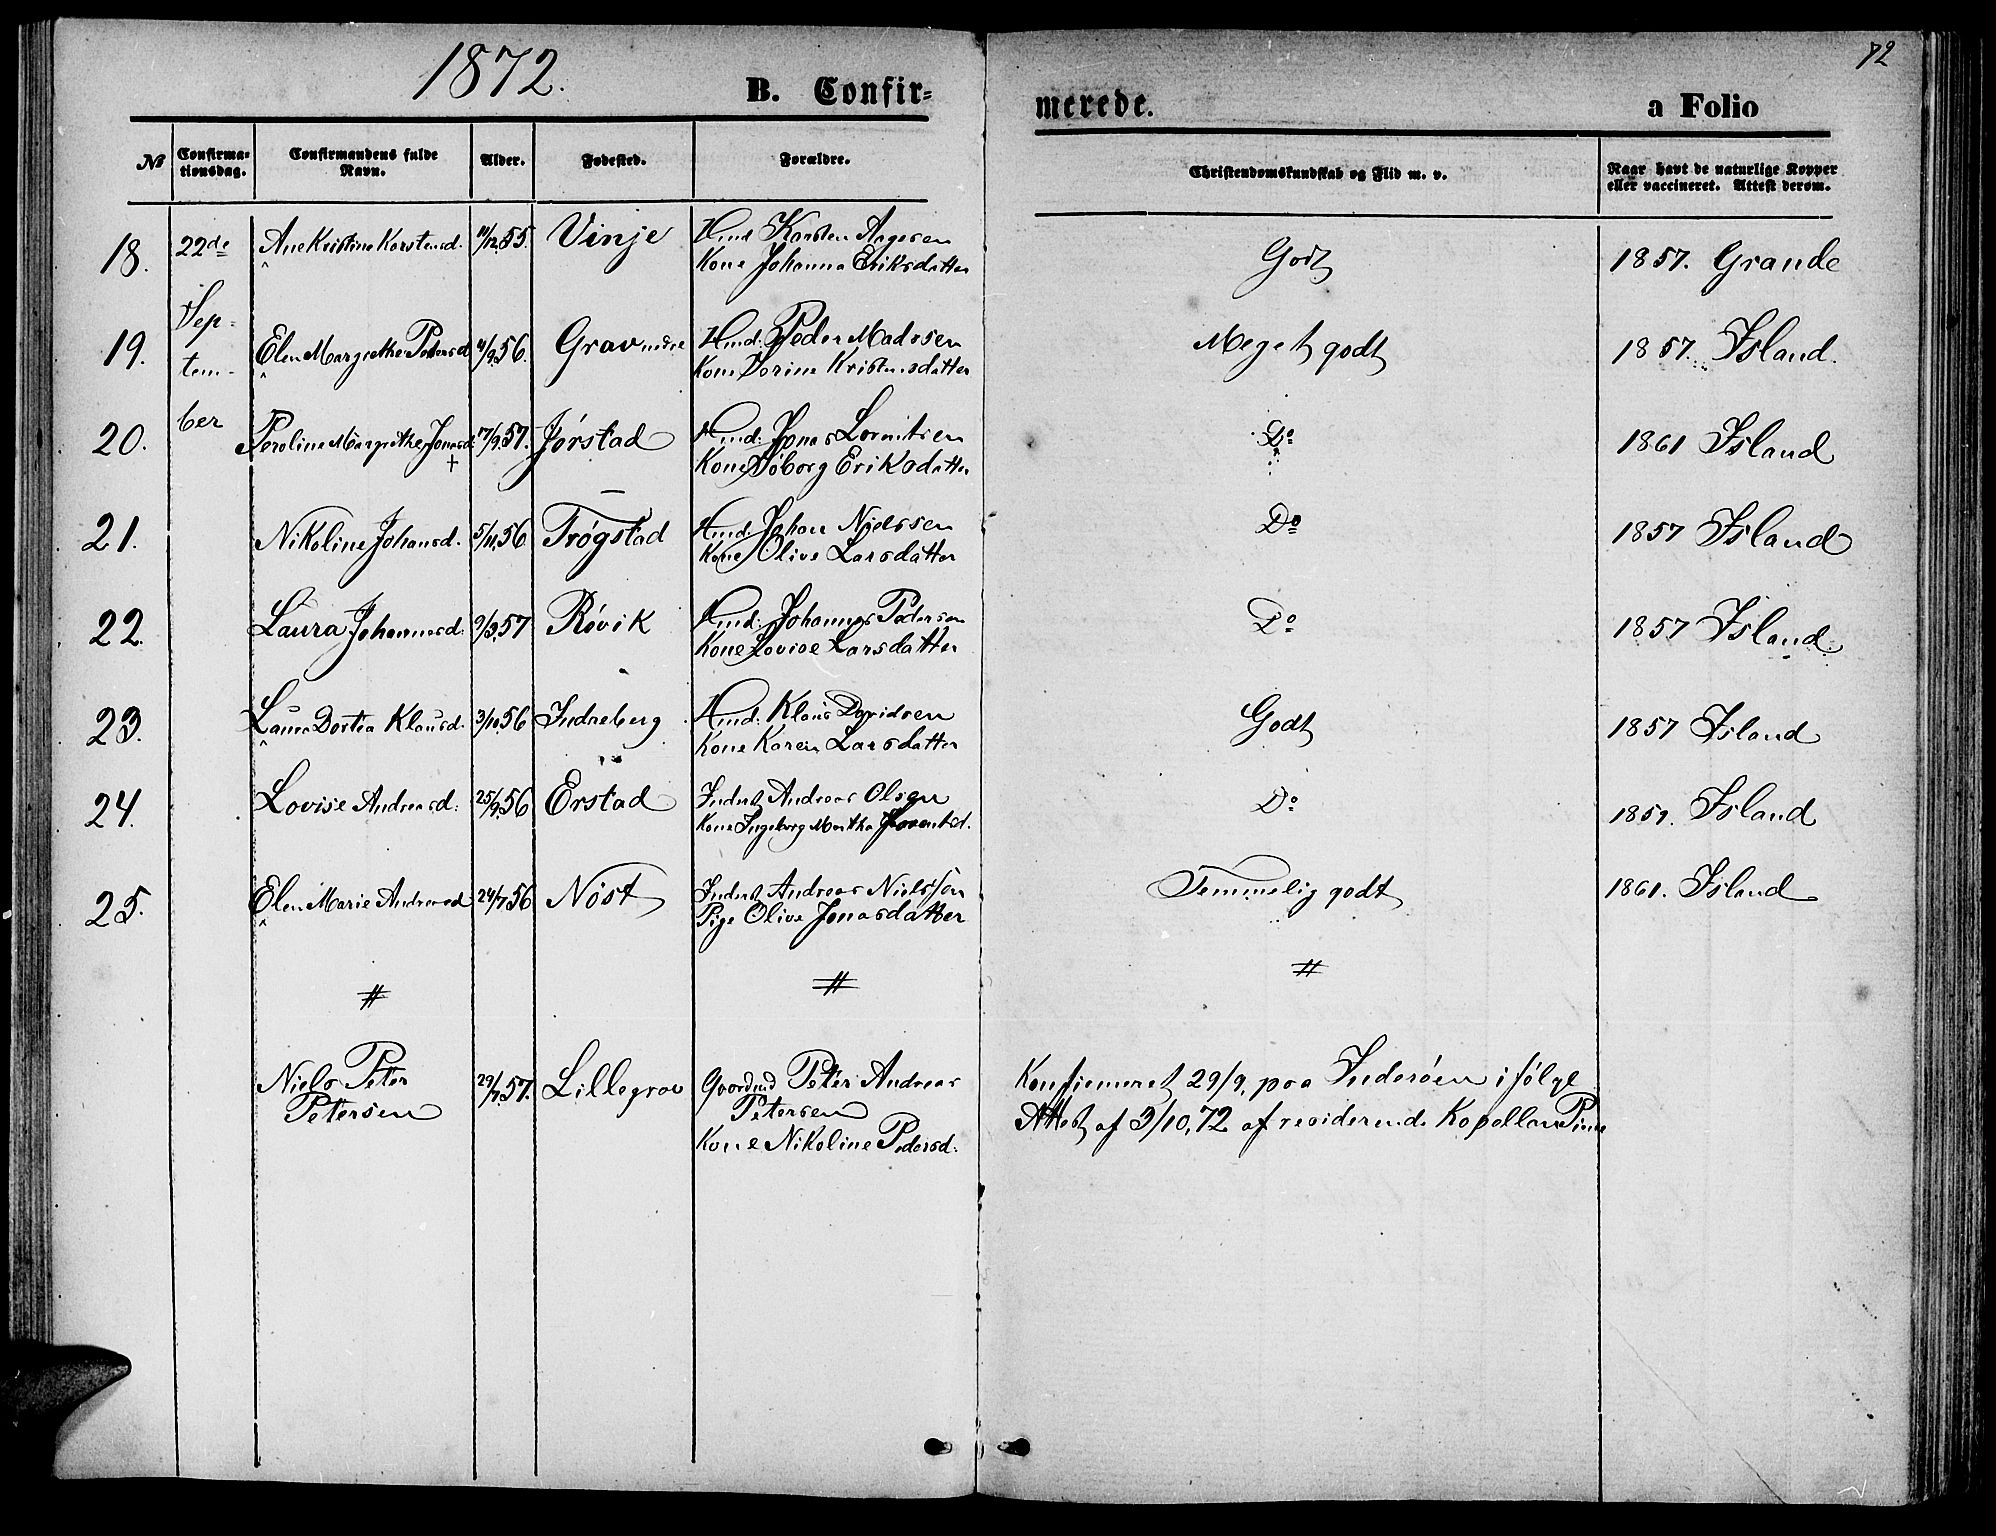 1872.
72
B. Confir=
merede.
a Folio
No
Confirma-
tionsdag.
Confirmandens fulde
Navn.
Alder.
Fødested.
Forældre.
Christendomskundskab og Flid m. v.
Naar havt de naturlige Kopper
eller vaccineret. Attest derom.
18. 22de Ane Kristine Karstensd. 11/12,55. Vinje Hmd Karsten Aagesen
Kone Johanna Eriksdatter
Godt 1857. Grande
Sep=
tem-
ber
19. Elen Margrethe Petersd 4/9,56. Grav nedre Hmd: Peder Madssen
Kone Dorine Kristensdatter
Meget godt 1857. Island.
20. Peroline Margrethe Jonasd 17/9,57. Jørstad Hmd: Jonas Lorntsen
Kone Søborg Eriksdatter
Do 1861 Island
21. Nikoline Johansd. 5/11,56 Trøgstad Hmd: Johan Nielssen
Kone Olive Larsdatter
Do 1857 Island
22. Laura Johannesd. 9/3,57 Røvik Hmd: Johannes Pedersen
Kone Lovise Larsdatter
Do 1857 Island
23. Laura Dortea Klausd. 3/10,56 Indreberg Hmd: Klaus Davidsen
Kone Karen Larsdatter
Godt 1857 Island
24. Lovise Andreasd. 25/9,56 Erstad Inderst Andreas Olsen
Kone Ingeborg Martha Lorentsd.
Do 1859. Island
25. Elen Marie Andreasd 24/7,56 Nøst Inderst Andreas Nielssøn
Pige Olive Jonasdatter
Temmelig godt 1861. Island
Niels Peter
Petersen
29/7,57. Lillegrav Gaardmd Peter Andreas
Petersen
Kone Nikoline Pedersd.
Konfirmeret 29/9, paa Inderøen i følge
Attest af 3/10,72 af residerende Kapellan